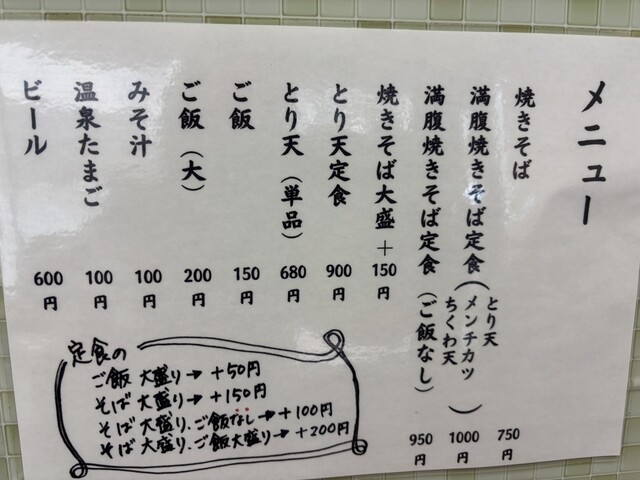 メニュー
焼きそば 750円
満腹焼きそば定食(とり天 メンチカツ ちくわ天) 1000円
満腹焼きそば定食(ご飯なし) 950円
焼きそば大盛+150円
とり天定食 900円
とり天(単品) 680円
ご飯 150円
ご飯(大) 200円
みそ汁 100円
温泉たまご 100円
ビール 600円
定食の
ご飯 大盛り→+50円
そば 大盛り→+150円
そば 大盛り.ご飯なし→+100円
そば 大盛り.ご飯大盛り→+200円